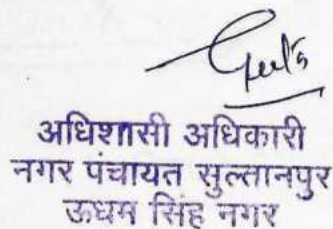 अधिशासी अधिकारी
नगर पंचायत सुल्तानपुर
ऊधम सिंह नगर